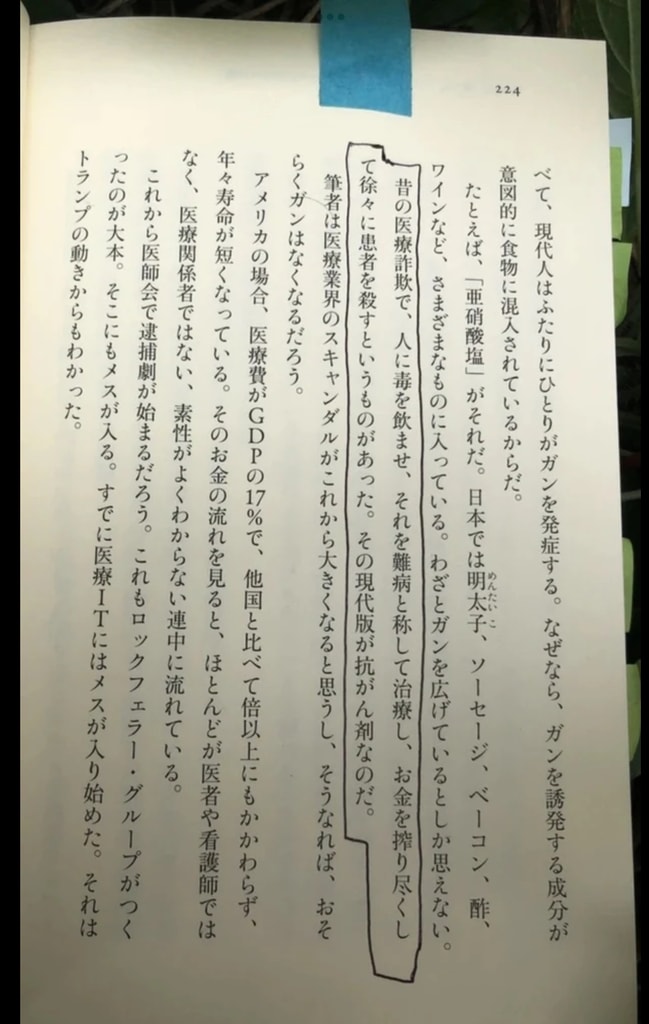 224
べて、現代人はふたりにひとりがガンを発症する。なぜなら、ガンを誘発する成分が
意図的に食物に混入されているからだ。
たとえば、「亜硝酸塩」がそれだ。日本では明太子、ソーセージ、ベーコン、酢、
めんたいこ
ワインなど、さまざまなものに入っている。わざとガンを広げているとしか思えない。
昔の医療詐欺で、人に毒を飲ませ、それを難病と称して治療し、お金を搾り尽くし
て徐々に患者を殺すというものがあった。その現代版が抗がん剤なのだ。
筆者は医療業界のスキャンダルがこれから大きくなると思うし、そうなれば、おそ
らくガンはなくなるだろう。
アメリカの場合、医療費がGDPの17%で、他国と比べて倍以上にもかかわらず、
年々寿命が短くなっている。そのお金の流れを見ると、ほとんどが医者や看護師では
なく、医療関係者ではない、素性がよくわからない連中に流れている。
これから医師会で逮捕劇が始まるだろう。これもロックフェラー・グループがつく
ったのが大本。そこにもメスが入る。すでに医療ITにはメスが入り始めた。それは
トランプの動きからもわかった。